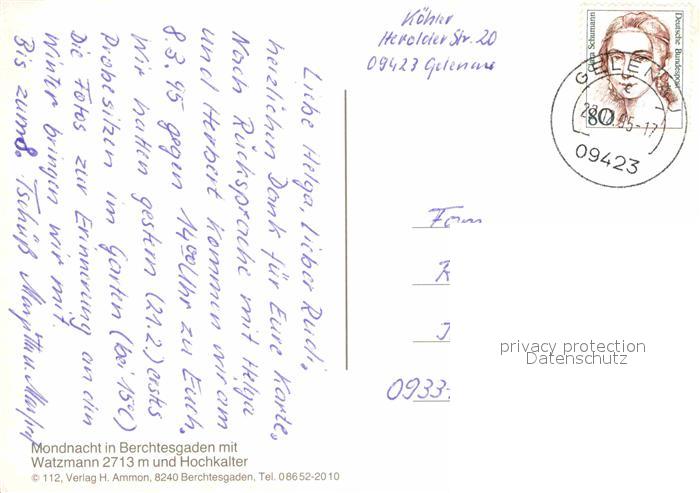 Köhler
Herolder Str. 20
09423 Gelenau
Clara Schumann
Deutsche Bundespost
80
GELENAU
09423
Liebe Helga, lieber Rudi,
herzlichen Dank für Eure Karte.
Nach Rücksprache mit Helga
und Herbert kommen wir am
8.3.95 gegen 14⁰⁰ Uhr zu Euch.
Wir hatten gestern (21.2.) erstes
Probesitzen im Garten (bei 15°C)
Die Fotos zur Erinnerung an den
Winter bringen wir mit.
Bis zum 8. Tschüß
Fam
0933
privacy protection
Datenschutz
Mondnacht in Berchtesgaden mit
Watzmann 2713 m und Hochkalter
© 112, Verlag H. Ammon, 8240 Berchtesgaden, Tel. 08652-2010